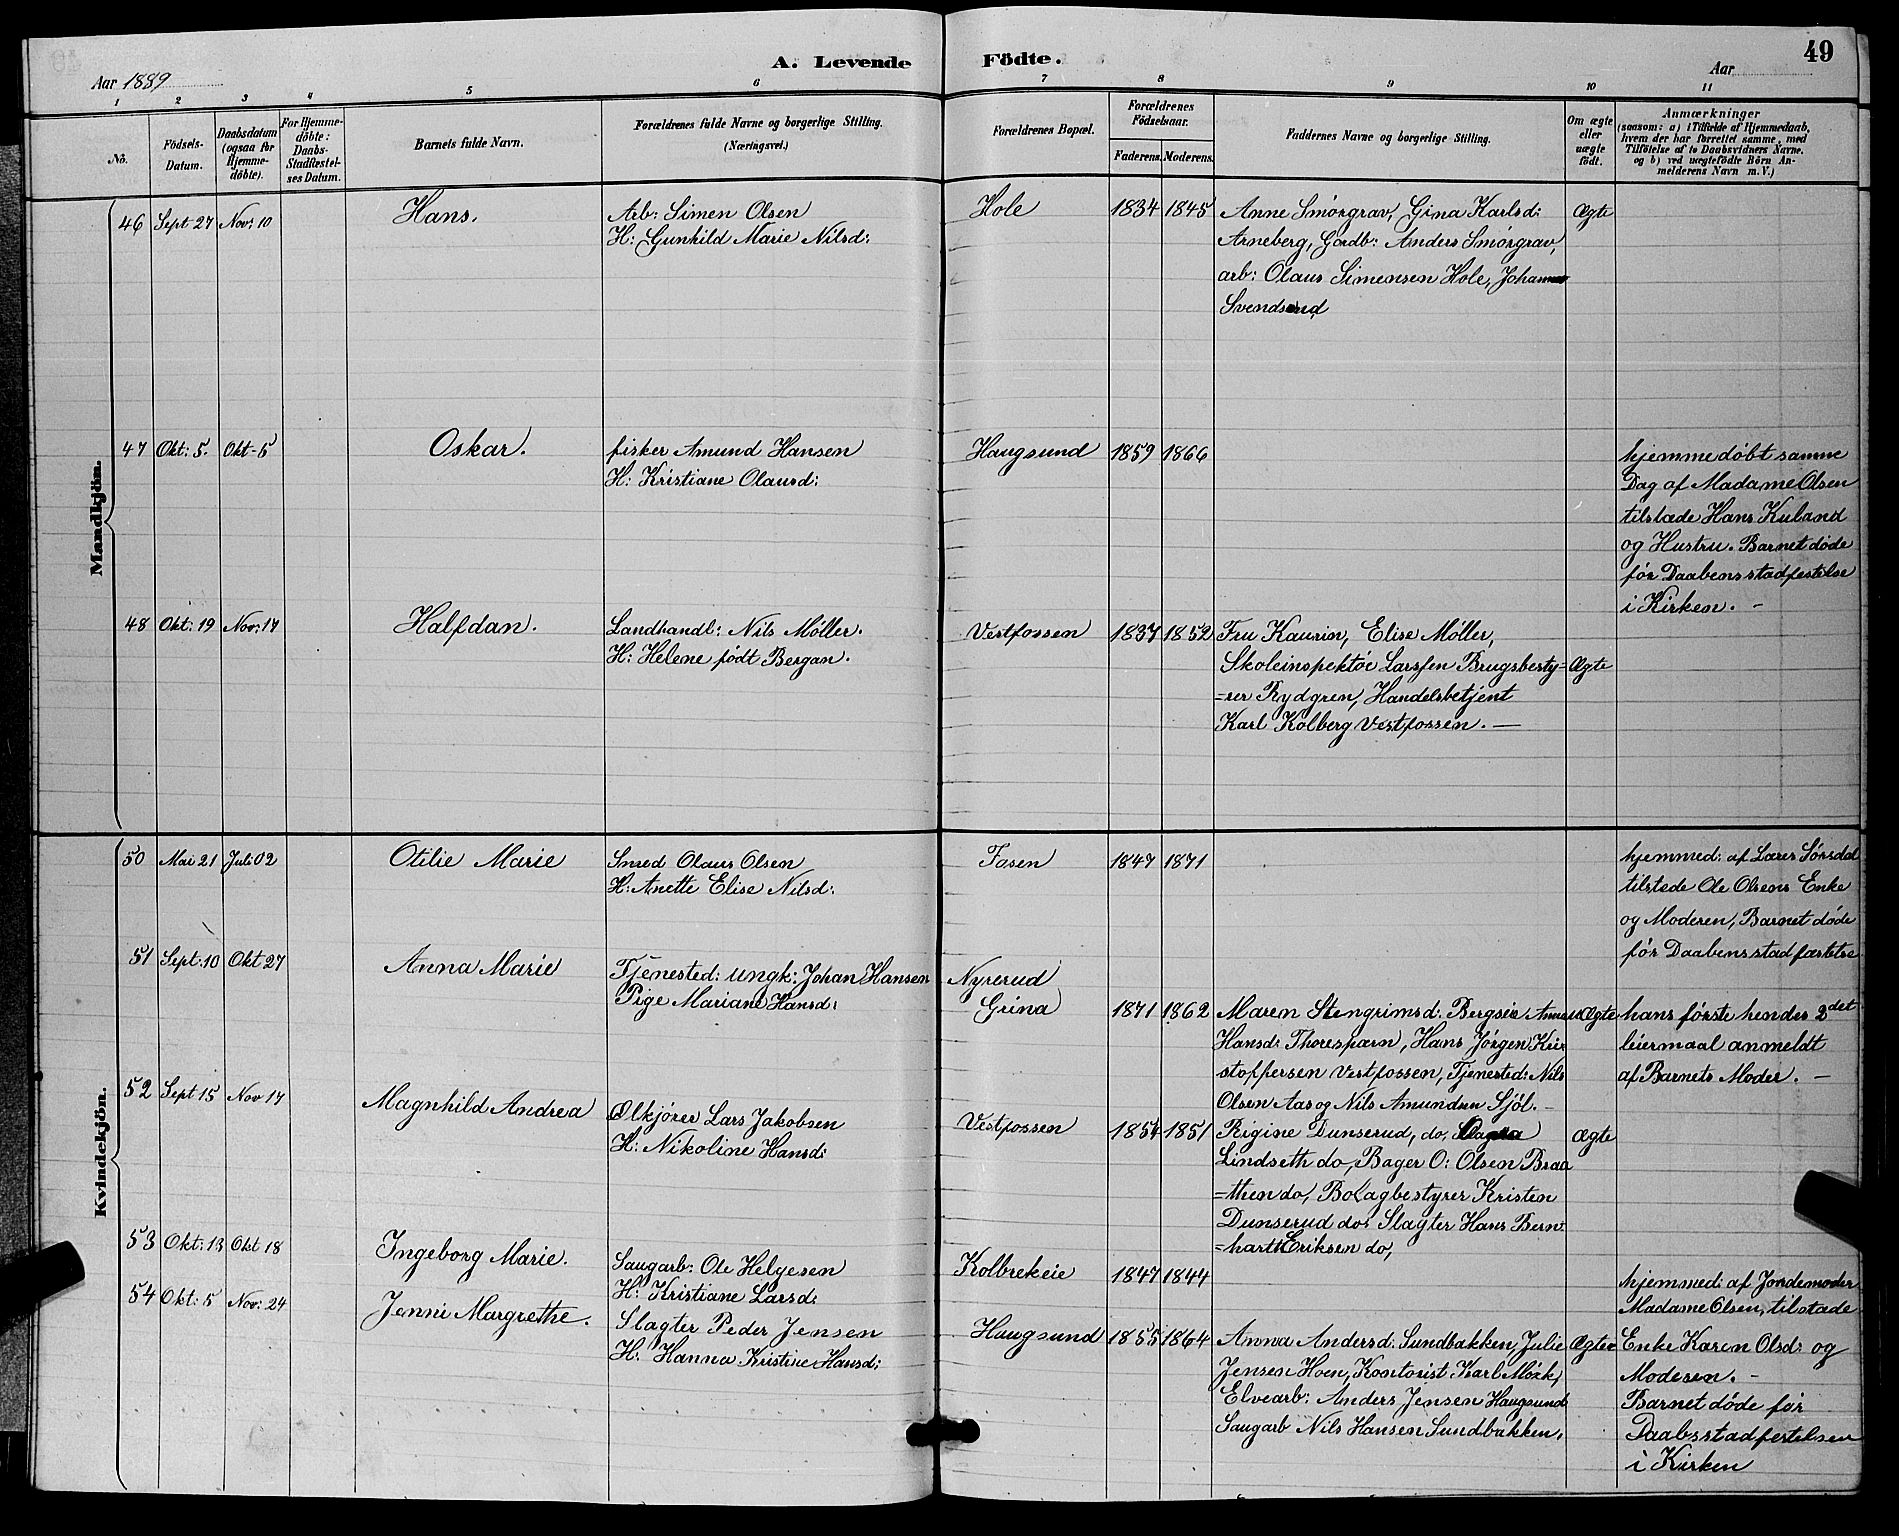 49
Aar 1889
A. Levende Födte.
Aar
1 2 3 4 5 6 7 8 9 10 11
No.
Födsels-Datum.
Daabsdatum (ogsaa for Hjemmedöbte).
For Hjemmedöbte: Daabs-Stadfæstelses Datum.
Barnets fulde Navn.
Forældrenes fulde Navne og borgerlige Stilling.
(Næringsvei.)
Forældrenes Bopæl.
Forældrenes Födselsaar.
Faderens. Moderens.
Faddernes Navne og borgerlige Stilling.
Om ægte eller uægte födt.
Anmærkninger
(saasom: a) i Tilfælde af Hjemmedaab,
hvem der har forrettet samme, med
Tilföielse af to Daabsvidners Navne.
og b) ved uægtefödte Börn An-
melderens Navn m. V.)
Mandkjön.
46 Sept 27 Nov: 10 Hans. Arb: Simen Olsen Hole 1834 1845 Anne Smørgrav, Gina Karlsd: Ægte
H: Gunhild Marie Nilsd: Arneberg, Gardb: Anders Smørgrav,
arb: Olaus Simensen Hole, Johannes
Svendsrud
47 Okt: 5. Okt-5 Oskar. fisker Amund Hansen Haugsund 1859 1866 hjemmedøbt samme
H: Kristiane Olausd: Dag af Madame Olsen
tilstæde Hans Kuland
og Hustru. Barnet døde
før Daabens stadfestelse
i Kirken. -
48 Okt: 19 Nov: 17 Halfdan. Landhandl: Nils Møller. Vestfossen 1837 1852 Fru Kaurin, Elise Møller,
H: Helene født Bergan. Skoleinspektør Larssen Brugsbesty- Ægte
=rer Rydgren, Handelsbetjent
Karl Kolberg Vestfossen. —
Kvindekjön.
50 Mai 21 Juli 02 Otilie Marie Smed Olaus Olsen Fosen 1847 1871 hjemmed: af Lærer Sørsdal
H: Anette Elise Nilsd: tilstede Ole Olsens Enke
og Moderen, Barnet døde
før Daabens stadfæstelse
51 Sept: 10 Okt 27 Anna Marie Tjenested: ungk: Johan Hansen Nyrerud
Pige Mariane Hansd: Grina 1871 1862 Maren Stengrimsd: Bergsie Anne uÆgte hans første hendes 2det
Hansd: Thoresparn, Hans Jørgen Kri- leiermaal anmeldt
stoffersen Vestfossen, Tjenested: Nils af Barnets Moder. —
Olsen Aas og Nils Amundsen Sjöl. -
52 Sept 15 Nov 17 Magnhild Andrea Ølkjører Lars Jakobsen Vestfossen 1854 1851 Rigine Dunserud, do, Ægte
H: Nikoline Hansd: Lindseth do, Bager O: Olsen Braa
=then do, Bolagbestyrer Kristen
Dunserud do, Slagter Hans Bern
=hartt Eriksen do,
53 Okt: 13 Okt 18 Ingeborg Marie. Saugarb: Ole Helgesen Kolbrekeie 1847 1844 hjemmed: af Jordemoder
H: Kristiane Larsd: Madame Olsen, tilstæde
54 Okt: 5 Nov: 24 Jenni Margrethe. Slagter Peder Jensen Haugsund 1855 1864 Anna Andersd: Sundbakken, Julie Ægte Enke Karen Olsd: og
H: Hanna Kristine Hansd: Jensen Hoen, Kontorist Karl Mork, Moderen. -
Elvearb: Anders Jensen Haugsund Barnet døde før
Saugarb Nils Hansen Sundbakken. Daabsstadfestelsen
i Kirken